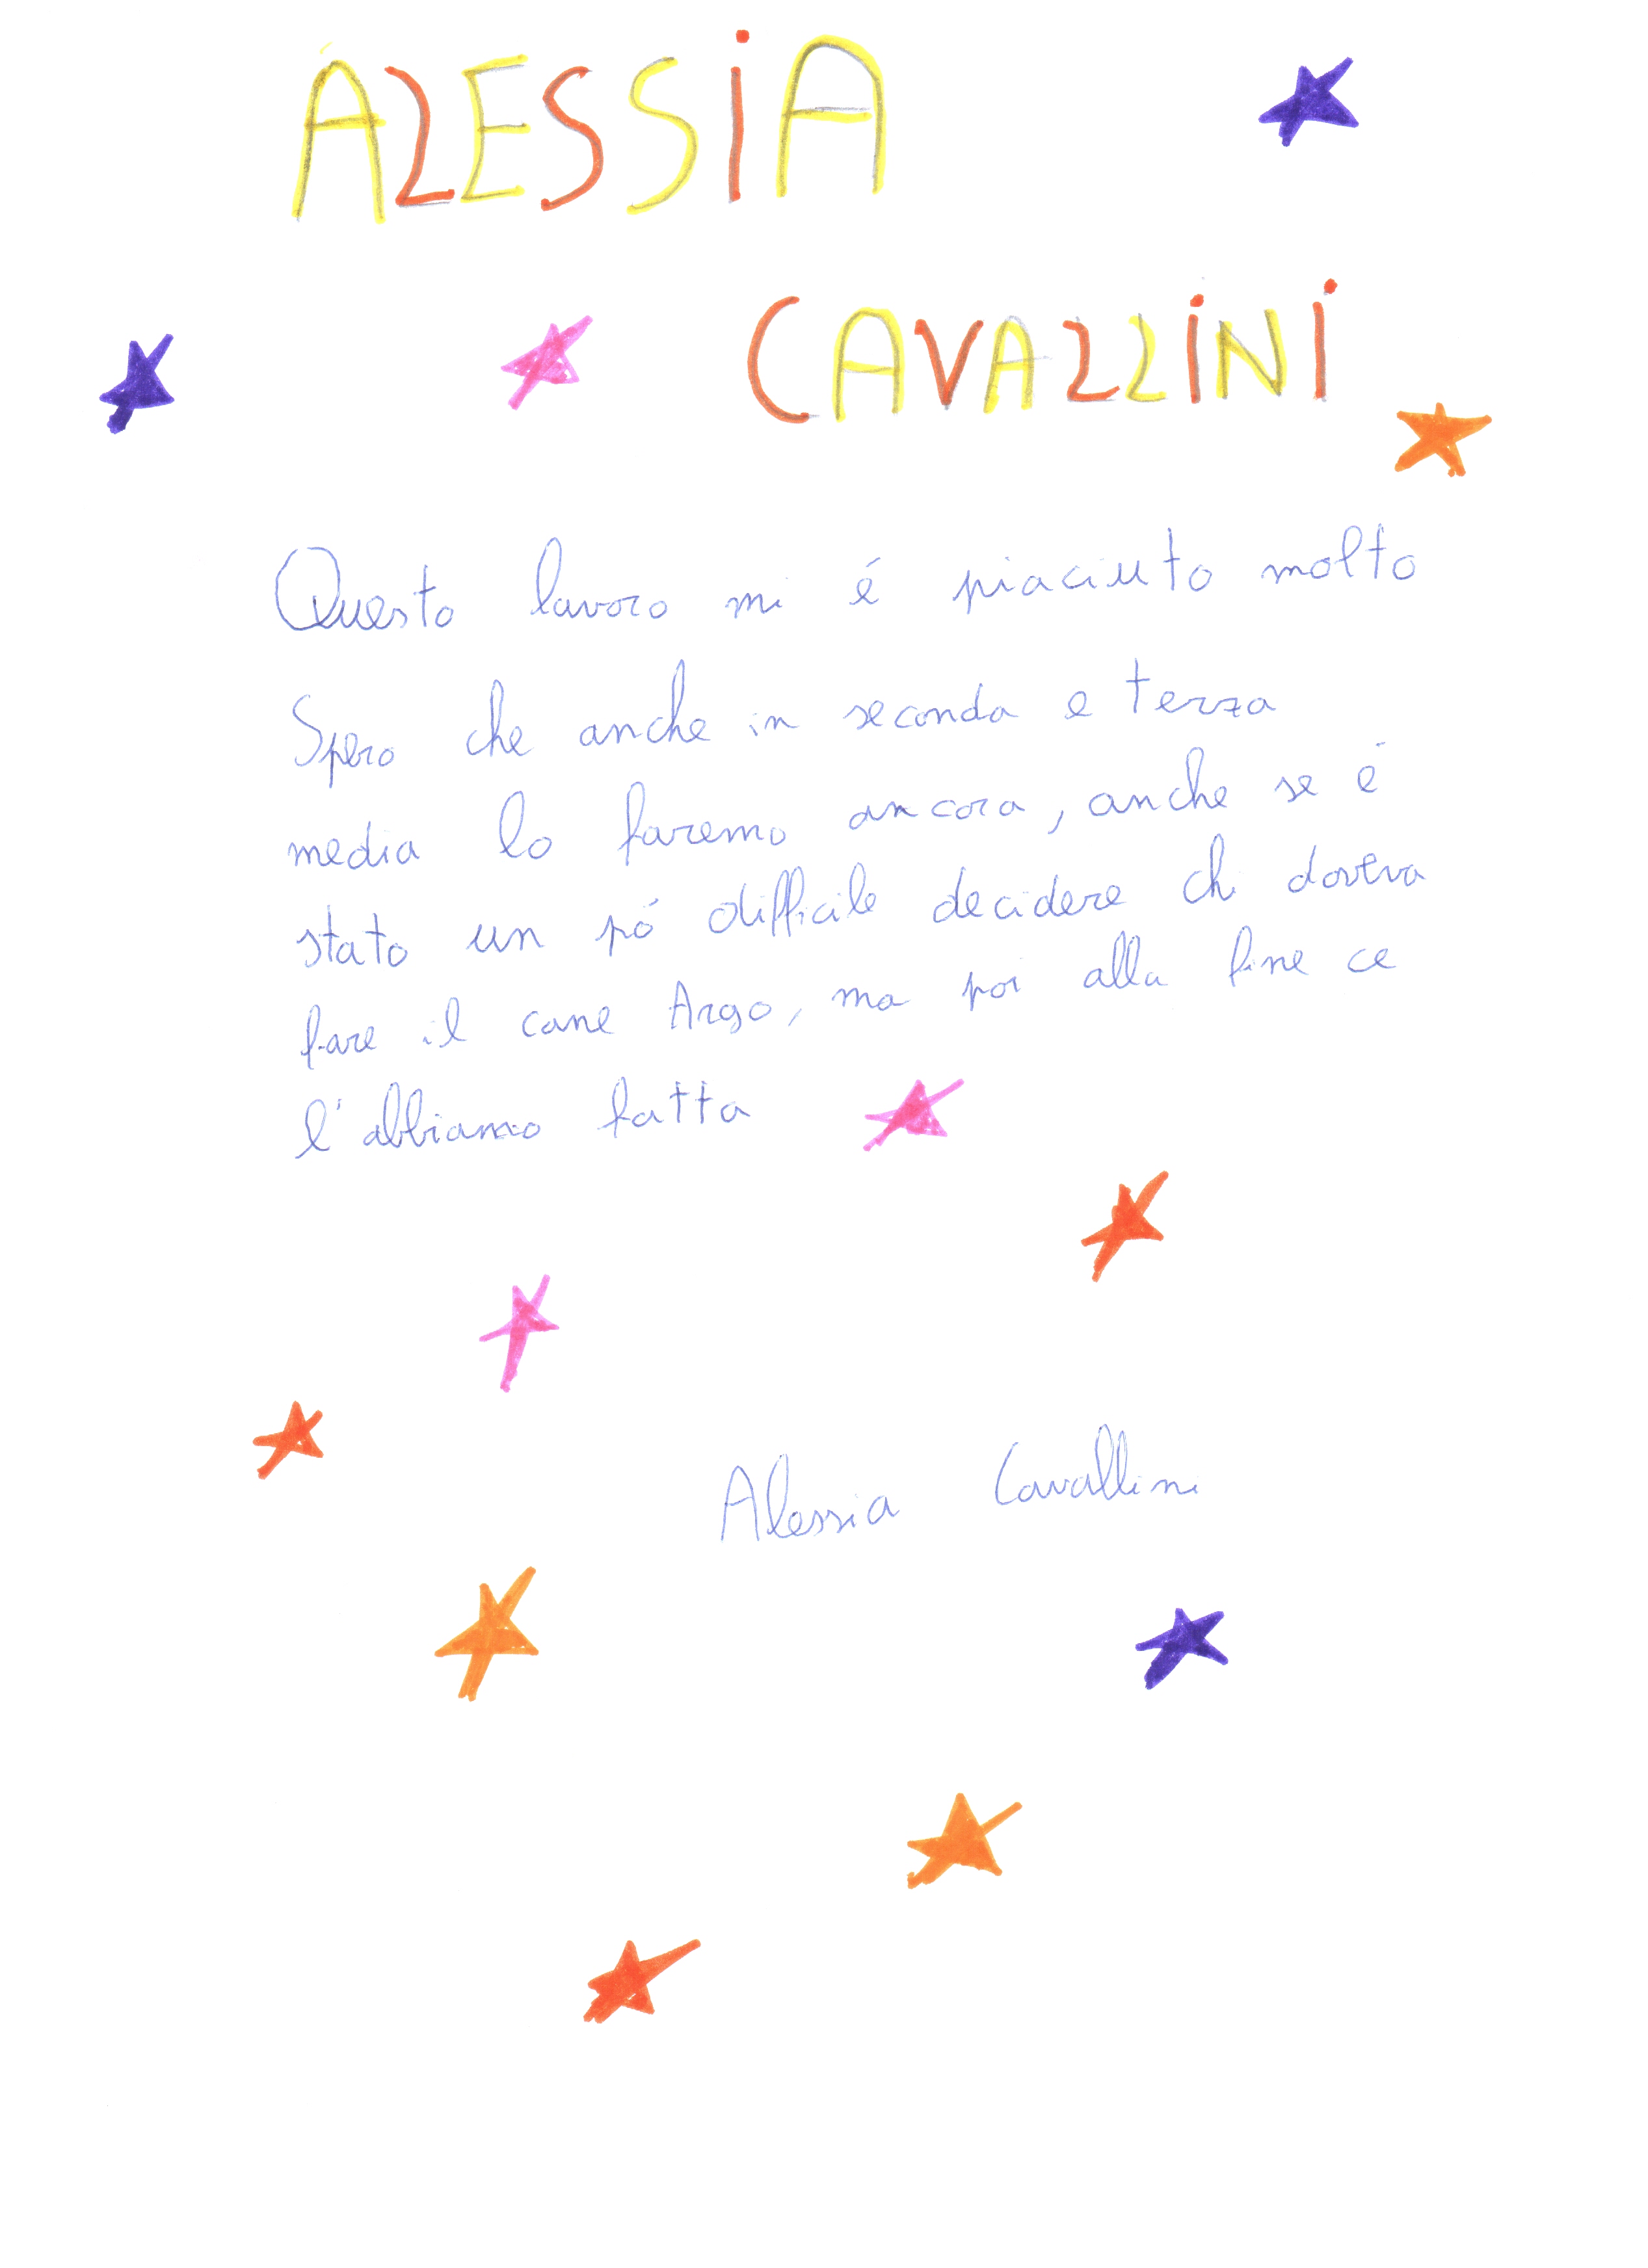 ALESSiA
CAVALLiNi
Questo lavoro mi é piaciuto molto
Spero che anche in seconda e terza
media lo faremo ancora, anche se é
stato un pó difficile decidere chi doveva
fare il cane Argo, ma poi alla fine ce
l'abbiamo fatta
Alessia Cavallini